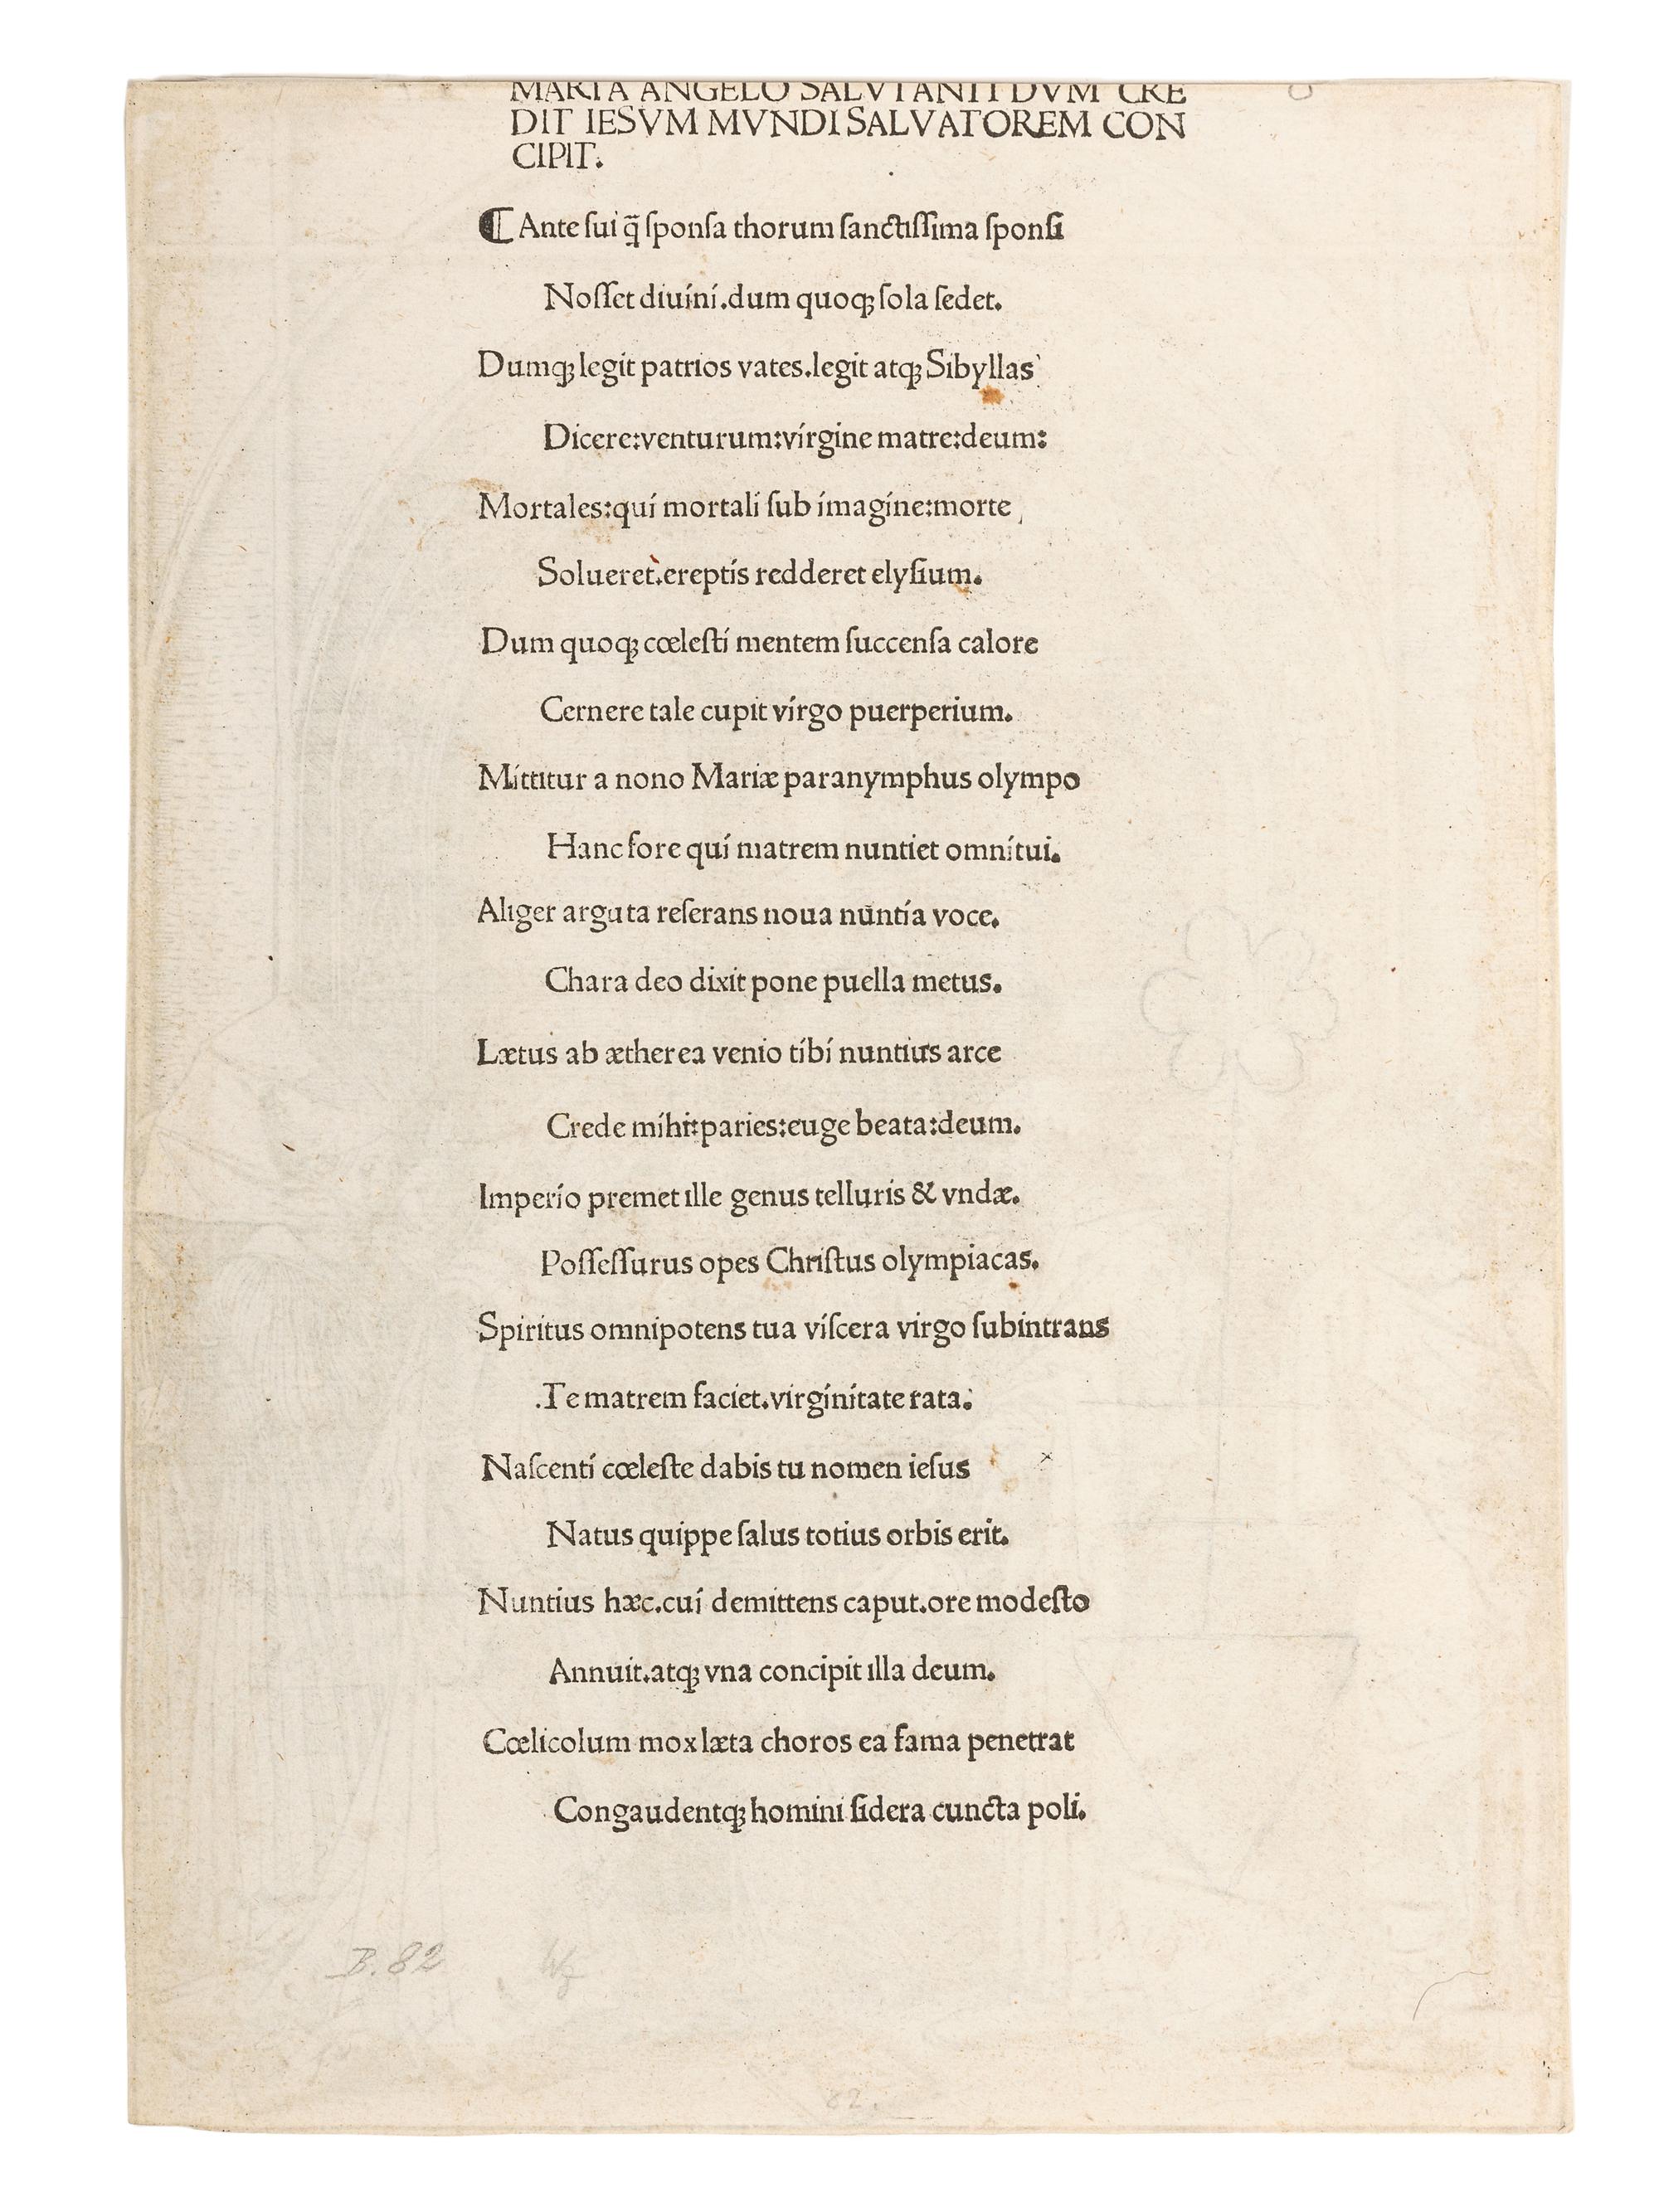 MARIA ANGELO SALVTANTI DVM CRE
DIT IESVM MVNDI SALVATOREM CON
CIPIT.
⁋ Ante ſui q̄ ſponſa thorum ſanctiſſima ſponſi
Noſſet diuini.dum quoqꝫ ſola ſedet.
Dumqꝫ legit patrios vates.legit atqꝫ Sibyllas
Dicere:venturum:virgine matre:deum:
Mortales:qui mortali ſub imagine:morte
Solueret.ereptis redderet elyſium.
Dum quoqꝫ cœleſti mentem ſuccenſa calore
Cernere tale cupit virgo puerperium.
Mittitur a nono Mariæ paranymphus olympo
Hanc fore qui matrem nuntiet omnitui.
Aliger arguta reſerans noua nuntia voce.
Chara deo dixit pone puella metus.
Lætus ab ætherea venio tibi nuntius arce
Crede mihi:paries:euge beata:deum.
Imperio premet ille genus telluris & vndæ.
Poſſeſſurus opes Chriſtus olympiacas.
Spiritus omnipotens tua viſcera virgo ſubintrans
.Te matrem faciet.virginitate rata.
Naſcenti cœleſte dabis tu nomen ieſus
Natus quippe ſalus totius orbis erit.
Nuntius hæc.cui demittens caput.ore modeſto
Annuit.atqꝫ vna concipit illa deum.
Cœlicolum mox læta choros ea fama penetrat
Congaudentqꝫ homini ſidera cuncta poli.
B.82
82.